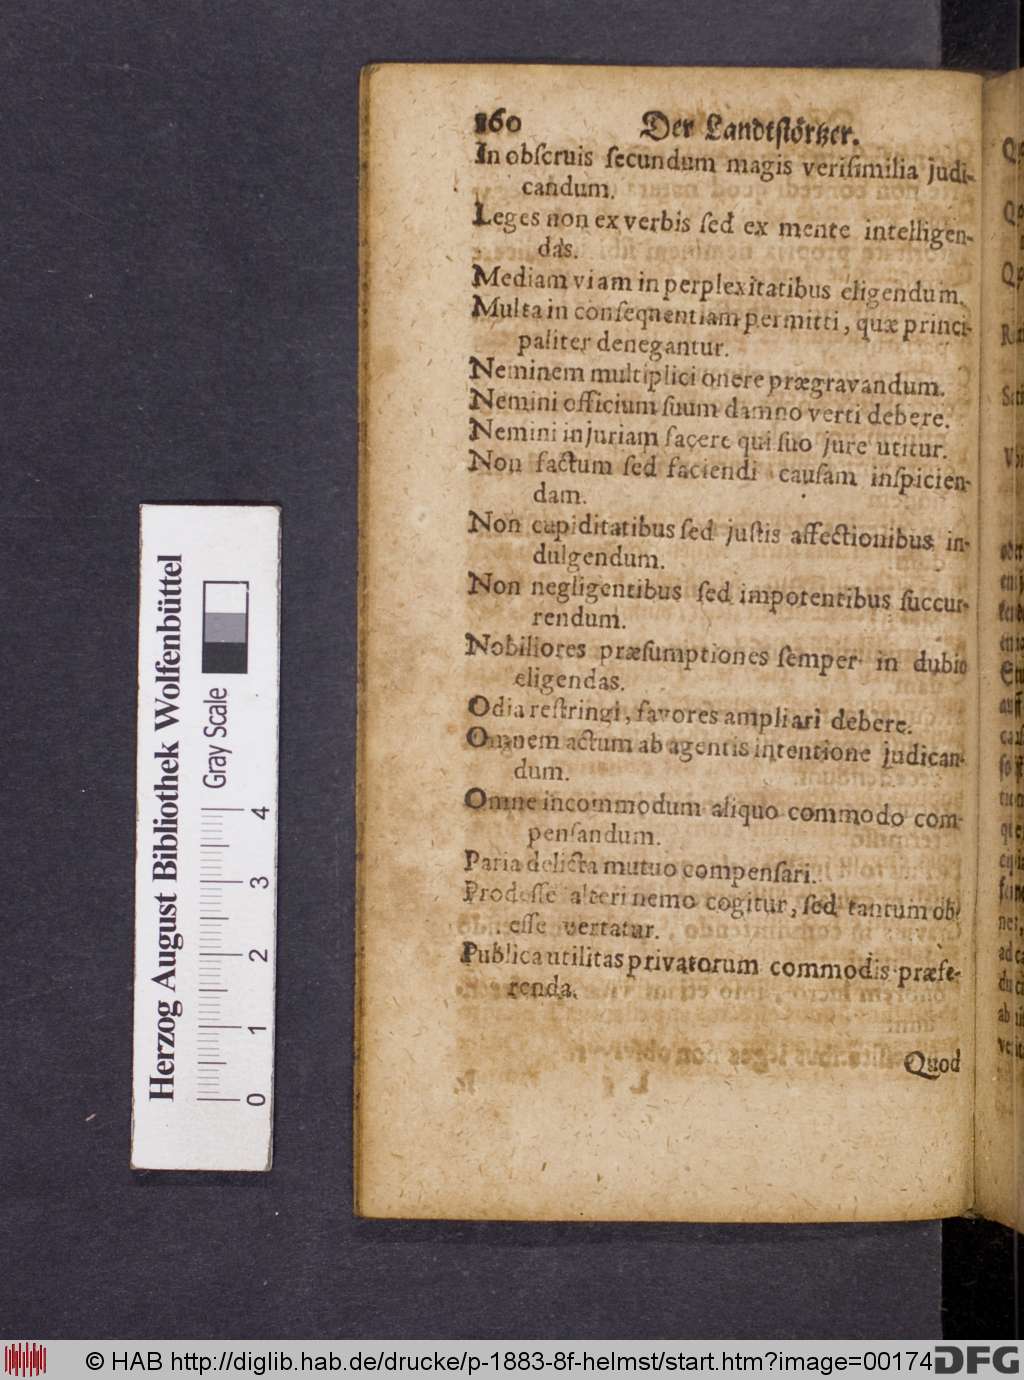 160 Der Landtſtörtzer.
In obſcruis ſecundum magis veriſimilia judi-
candum.
Leges non ex verbis ſed ex mente intelligen-
das.
Mediam viam in perplexitatibus eligendum.
Multa in conſequentiam permitti, quæ princi-
paliter denegantur.
Neminem multiplici onere prægravandum.
Nemini officium ſuum damno verti debere.
Nemini injuriam facere qui ſuo jure utitur.
Non factum ſed faciendi cauſam inſpicien-
dam.
Non cupiditatibus ſed juſtis affectionibus in-
dulgendum.
Non negligentibus ſed impotentibus ſuccur-
rendum.
Nobiliores præſumptiones ſemper in dubio
eligendas.
Odia reſtringi, favores ampliari debere.
Omnem actum ab agentis intentione judican-
dum.
Omne incommodum aliquo commodo com-
penſandum.
Paria delicta mutuo compenſari.
Prodeſſe alteri nemo cogitur, ſed tantum ob-
eſſe vertatur.
Publica utilitas privatorum commodis præfe-
renda.
Quod
Herzog August Bibliothek Wolfenbüttel
Gray Scale
0 1 2 3 4
© HAB http://diglib.hab.de/drucke/p-1883-8f-helmst/start.htm?image=00174
DFG